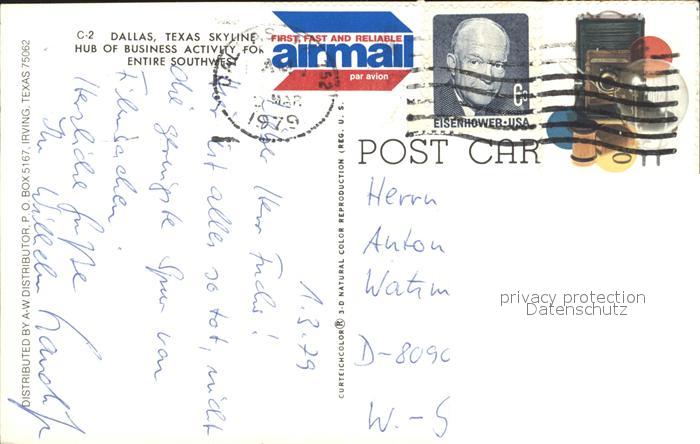 C-2 DALLAS, TEXAS SKYLINE
HUB OF BUSINESS ACTIVITY FOR
ENTIRE SOUTHWEST
FIRST, FAST AND RELIABLE
airmail
par avion
6c
EISENHOWER·USA
MAR
POST CAR
1.3.79
Herr Fuchs!
ist alles so tot, nicht
die geringste Spur von
Filmsachen!
Herzliche Grüße
Ihr Wilhelm
Herrn
Anton
D-8090
W.-
privacy protection
Datenschutz
CURTEICHCOLOR® 3-D NATURAL COLOR REPRODUCTION (REG. U.S.
DISTRIBUTED BY A-W DISTRIBUTOR, P. O. BOX 5167, IRVING, TEXAS 75062